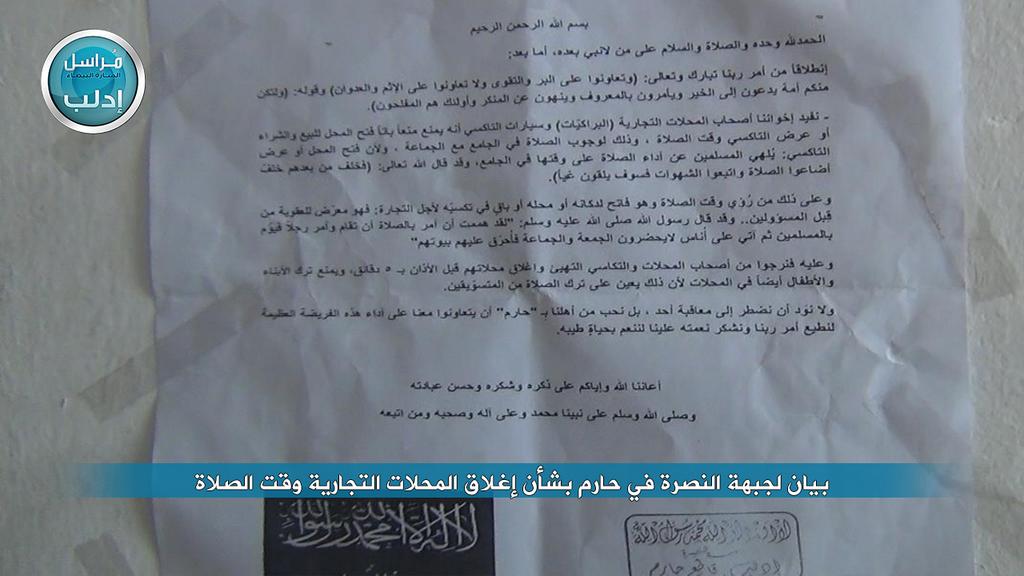 بسم الله الرحمن الرحيم
الحمدلله وحده والصلاة والسلام على من لانبي بعده، أما بعد:
إنطلاقاً من أمر ربنا تبارك وتعالى: (وتعاونوا على البر والتقوى ولا تعاونوا على الإثم والعدوان) وقوله: (ولتكن
منكم أمة يدعون إلى الخير ويأمرون بالمعروف وينهون عن المنكر وأولئك هم المفلحون).
- نفيد إخواننا أصحاب المحلات التجارية (البراكيّات) وسيارات التاكسي أنه يمنع منعاً باتاً فتح المحل للبيع والشراء
أو عرض التاكسي وقت الصلاة ، وذلك لوجوب الصلاة في الجامع مع الجماعة ، ولأن فتح المحل أو عرض
التاكسي: يُلهي المسلمين عن أداء الصلاة على وقتها في الجامع، وقد قال الله تعالى: (فخلف من بعدهم خلف
أضاعوا الصلاة واتبعوا الشهوات فسوف يلقون غياً).
وعلى ذلك من رُؤي وقت الصلاة وهو فاتح لدكانه أو محله أو باقٍ في تكسيّه لأجل التجارة: فهو معرّض للعقوبة من
قبل المسؤولين.. وقد قال رسول الله صلى الله عليه وسلم: "لقد هممت أن آمر بالصلاة أن تقام وآمر رجلاً فيؤم
بالمسلمين ثم آتي على أناس لايحضرون الجمعة والجماعة فأحرّق عليهم بيوتهم"
وعليه فنرجوا من أصحاب المحلات والتكاسي التهيئ وإغلاق محلاتهم قبل الأذان بـ ٥ دقائق، ويمنع ترك الأبناء
والأطفال أيضاً في المحلات لأن ذلك يعين على ترك الصلاة من المتسوّيقين.
ولا نوّد أن نضطر إلى معاقبة أحد ، بل نحب من أهلنا بـ "حارم" أن يتعاونوا معنا على أداء هذه الفريضة العظيمة
لنطيع أمر ربنا ونشكر نعمته علينا لننعم بحياةٍ طيبه.
أعاننا الله وإياكم على ذكره وشكره وحسن عبادته
وصلى الله وسلم على نبينا محمد وعلى آله وصحبه ومن اتبعه
مُراسل
المنارة البيضاء
إدلب
بيان لجبهة النصرة في حارم بشأن إغلاق المحلات التجارية وقت الصلاة
لا إله إلا الله محمد رسول الله
لا إله إلا الله محمد رسول الله
إدلب حارم